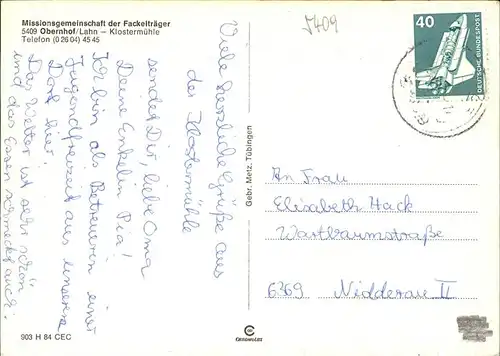 Missionsgemeinschaft der Fackelträger
5409 Obernhof/Lahn – Klostermühle
Telefon (0 26 04) 45 45
5409
40
DEUTSCHE BUNDESPOST
Viele herzliche Grüße aus
der Klostermühle
sendet Dir, liebe Oma
Deine Enkelin Pia!
Ich bin als Betreuerin einer
Jugendfreizeit aus unserem
Dorf hier.
Das Wetter ist sehr schön
und das Essen schmeckt auch.
Gebr. Metz, Tübingen
An Frau
Elisabeth Hack
Wartbaumstraße
6369 Nidderau II
903 H 84 CEC